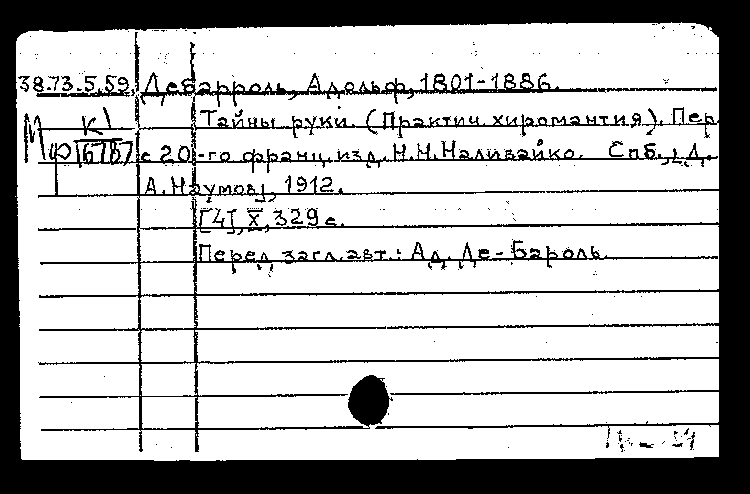 38.73.5.59. Дебарроль, Адольф, 1801-1886.
К1 Тайны руки. (Практич. хиромантия). Пер.
МФ с 20-го франц. изд. Н.Н. Наливайко. Спб., д.
А. Наумовı, 1912.
[4], X, 329 с.
Перед загл. авт.: Ад. Де-Бароль.